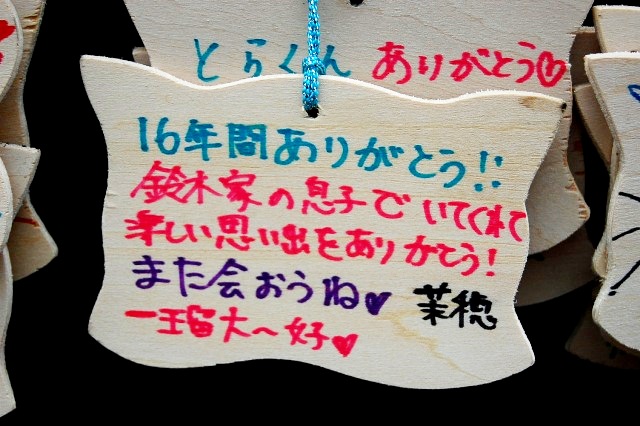 とらくん ありがとう♡
16年間ありがとう!!
鈴木家の息子でいてくれて
楽しい思い出をありがとう!
また会おうね♥ 茉穂
一瑠大〜好♥